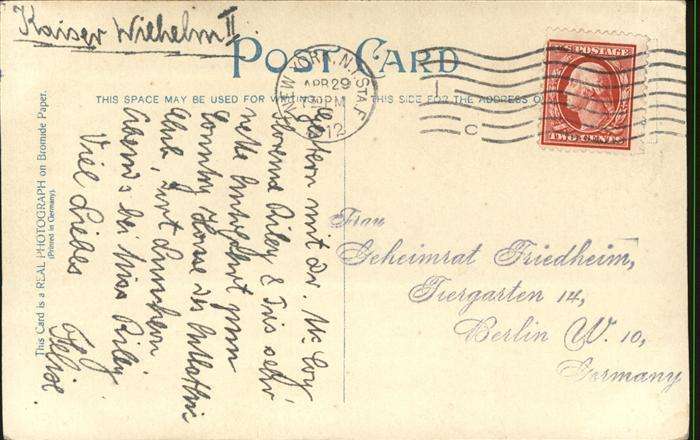 Kaiser Wilhelm II
POST CARD
THIS SPACE MAY BE USED FOR WRITING
THIS SIDE FOR THE ADDRESS
NEW YORK, N.Y. STA. F
APR 29
PM
12
U.S. POSTAGE
TWO CENTS
This Card is a REAL PHOTOGRAPH on Bromide Paper.
(Printed in Germany).
Gestern mit Dr. Mc Coy
Florence Riley & Iris sehr
nette zum
Country House des
Club, dort Luncheon
Abends bei Miss Riley
Viel Liebes
Felix.
Frau
Geheimrat Friedheim,
Tiergarten 14,
Berlin W. 10,
Germany